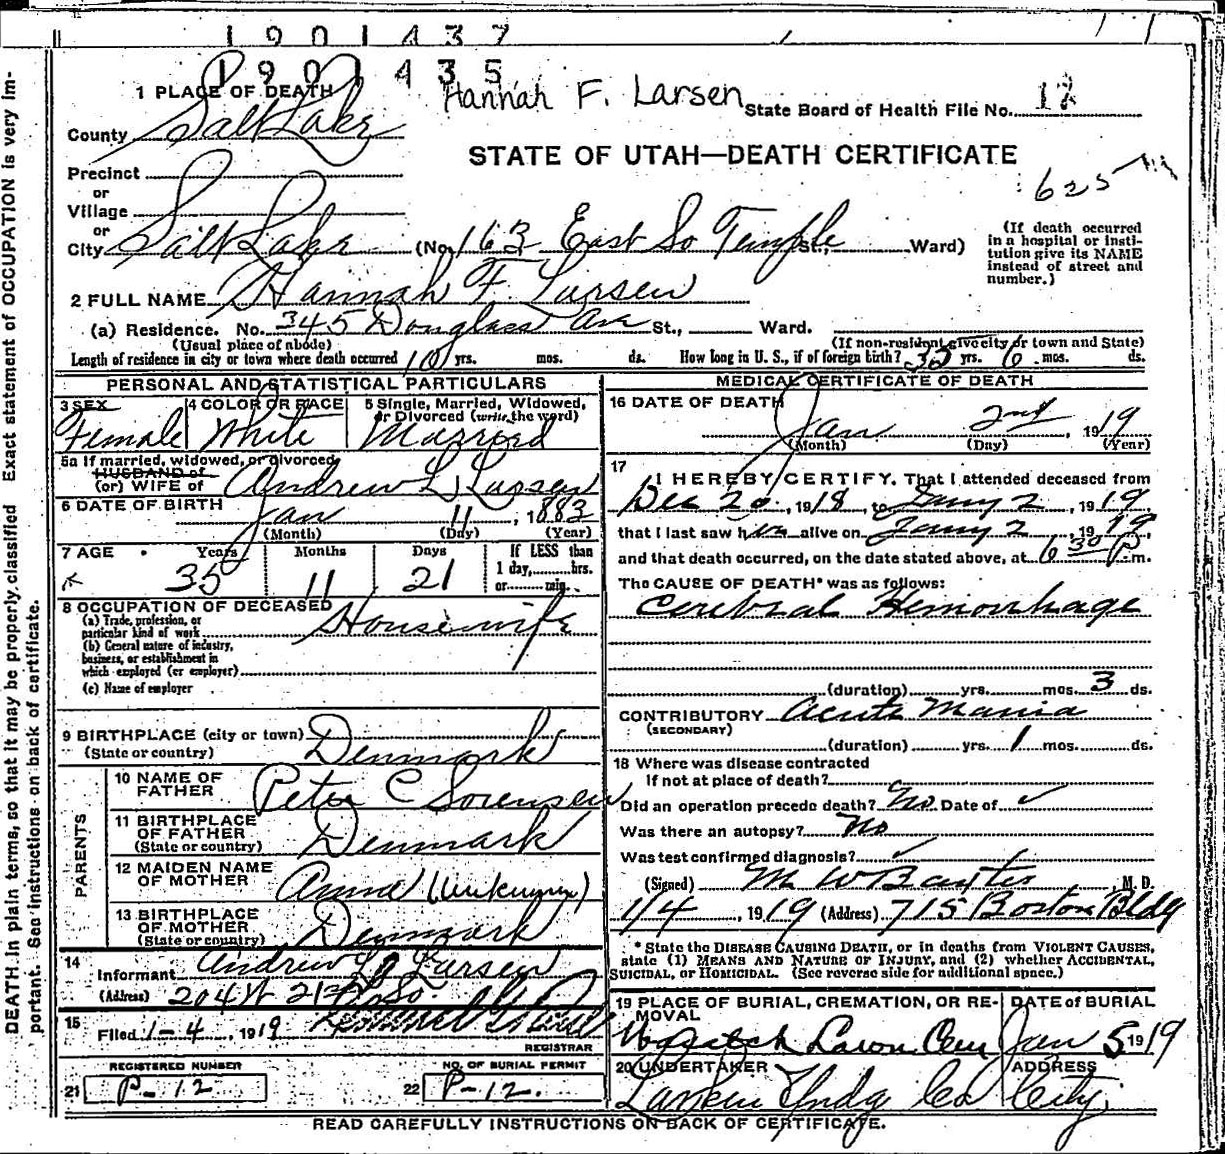 1901437
1901435
1 PLACE OF DEATH Hannah F. Larsen State Board of Health File No. 12
County Salt Lake
STATE OF UTAH—DEATH CERTIFICATE
Precinct
or
625
Village
or
City Salt Lake (No. 163 East So Temple St., Ward)
(If death occurred
in a hospital or insti-
tution give its NAME
instead of street and
number.)
2 FULL NAME Hannah F. Larsen
(a) Residence. No. 345 Douglass Ave St., Ward.
(Usual place of abode) (If non-resident give city or town and State)
Length of residence in city or town where death occurred 10 yrs. mos. ds. How long in U. S., if of foreign birth? 35 yrs. 6 mos. ds.
PERSONAL AND STATISTICAL PARTICULARS
3 SEX 4 COLOR OR RACE 5 Single, Married, Widowed,
or Divorced (write the word)
Female White Married
5a If married, widowed, or divorced
HUSBAND of
(or) WIFE of Andrew L. Larsen
6 DATE OF BIRTH
Jan 11, 1883
(Month) (Day) (Year)
7 AGE Years Months Days If LESS than
1 day, hrs.
35 11 21 or min.
8 OCCUPATION OF DECEASED
(a) Trade, profession, or
particular kind of work Housewife
(b) General nature of industry,
business, or establishment in
which employed (or employer)
(c) Name of employer
9 BIRTHPLACE (city or town)
(State or country) Denmark
PARENTS
10 NAME OF
FATHER Peter C Sorensen
11 BIRTHPLACE
OF FATHER
(State or country) Denmark
12 MAIDEN NAME
OF MOTHER Annie (Unknown)
13 BIRTHPLACE
OF MOTHER
(State or country) Denmark
14
Informant Andrew L. Larsen
(Address) 204 W 21st So.
15
Filed 1-4, 1919
REGISTRAR
REGISTERED NUMBER NO. OF BURIAL PERMIT
21 P-12 22 P-12.
MEDICAL CERTIFICATE OF DEATH
16 DATE OF DEATH
Jan 2nd, 1919
(Month) (Day) (Year)
17
I HEREBY CERTIFY. That I attended deceased from
Dec 20, 1918, to Jany 2, 1919
that I last saw her alive on Jany 2, 1919,
and that death occurred, on the date stated above, at 6 30 P m.
The CAUSE OF DEATH* was as follows:
Cerebral Hemorrhage
(duration) yrs. mos. 3 ds.
CONTRIBUTORY Acute Mania
(SECONDARY)
(duration) yrs. 1 mos. ds.
18 Where was disease contracted
If not at place of death?
Did an operation precede death? No. Date of ✓
Was there an autopsy? No
Was test confirmed diagnosis? ✓
(Signed) M W Baxter M. D.
1/4, 1919 (Address) 715 Boston Bldg
* State the DISEASE CAUSING DEATH, or in deaths from VIOLENT CAUSES,
state (1) MEANS AND NATURE OF INJURY, and (2) whether ACCIDENTAL,
SUICIDAL, or HOMICIDAL. (See reverse side for additional space.)
19 PLACE OF BURIAL, CREMATION, OR RE-
MOVAL DATE of BURIAL
Wasatch Lawn Cem Jan 5 1919
20 UNDERTAKER ADDRESS
Larkin Undg Co City
READ CAREFULLY INSTRUCTIONS ON BACK OF CERTIFICATE.
DEATH in plain terms, so that it may be properly classified Exact statement of OCCUPATION is very im-
portant. See instructions on back of certificate.